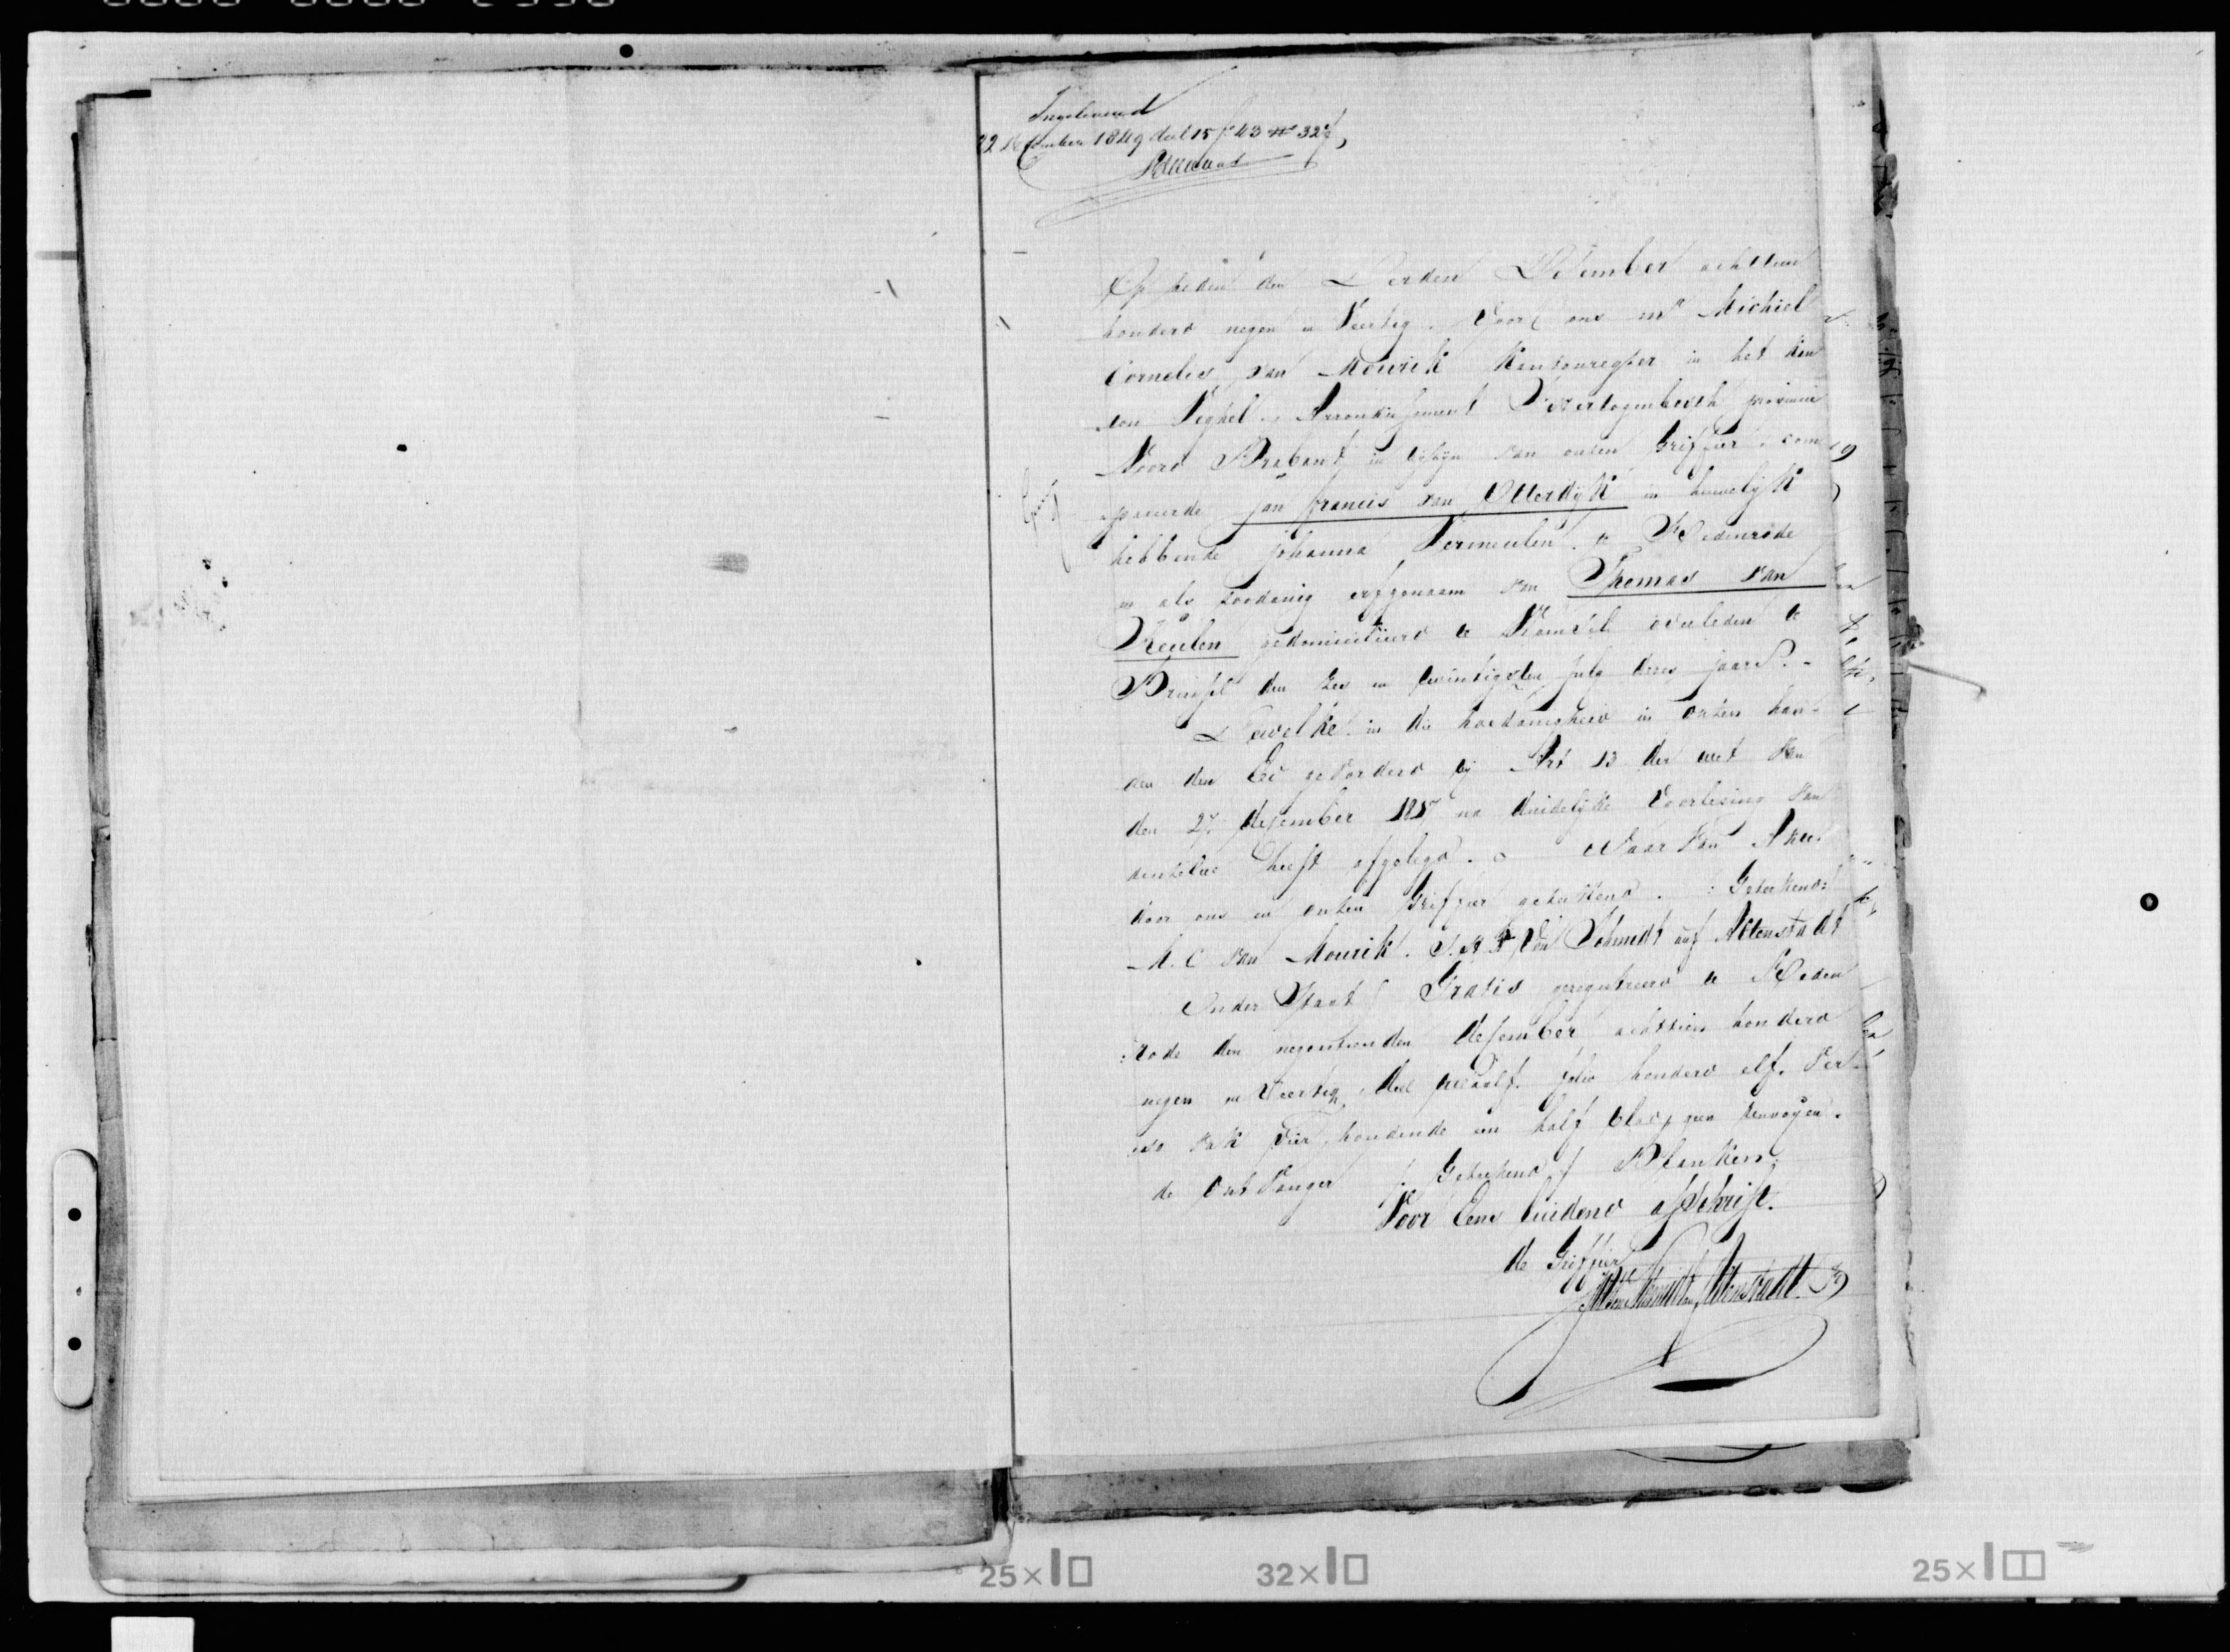 Ingeleverd
22 December 1849 deel 15 f° 43 N° 327
Op heden den Derden December achttien
honderd negen en Veertig. Voor ons Mr Michiel
Cornelis van Mourik Kantonregter in het Kan
ton Veghel, Arrondissement 's Hertogenbosch provincie
Noord Braband in bijzijn van onzen Griffier, com
pareerde Jan Francis van Otterdijk in huwelijk
hebbende Johanna Vermeulen te St Oedenrode
en als zoodanig erfgenaam van Thomas van
Keulen gedomicilieerd te overleden te
den zes en twintigsten July dezes jaars.
Dewelke in die hoedanigheid in onzen han-
den den Eed gevorderd bij Art 13 der wet van
den 27 december 1817 na duidelijke voorlesing van
denzelve heeft afgelegd. Waar van Akte
door ons en onzen Griffier geteekend. : Geteekend:
M. C van Mourik. J. H. F. von Schmidt auf Altenstadt
Onder Staat Gratis geregistreerd te St Oeden
:rode den negentienden december achttien honderd
negen en Veertig, deel twaalf folio honderd elf. Ver-
so vak vier, houdende een half blad, geen renvoijen.
de Ontvanger /: Geteekend / Blanken
Voor Eens luidend afschrift.
de Griffier
von Schmidt auf Altenstadt
25×
32×
25×